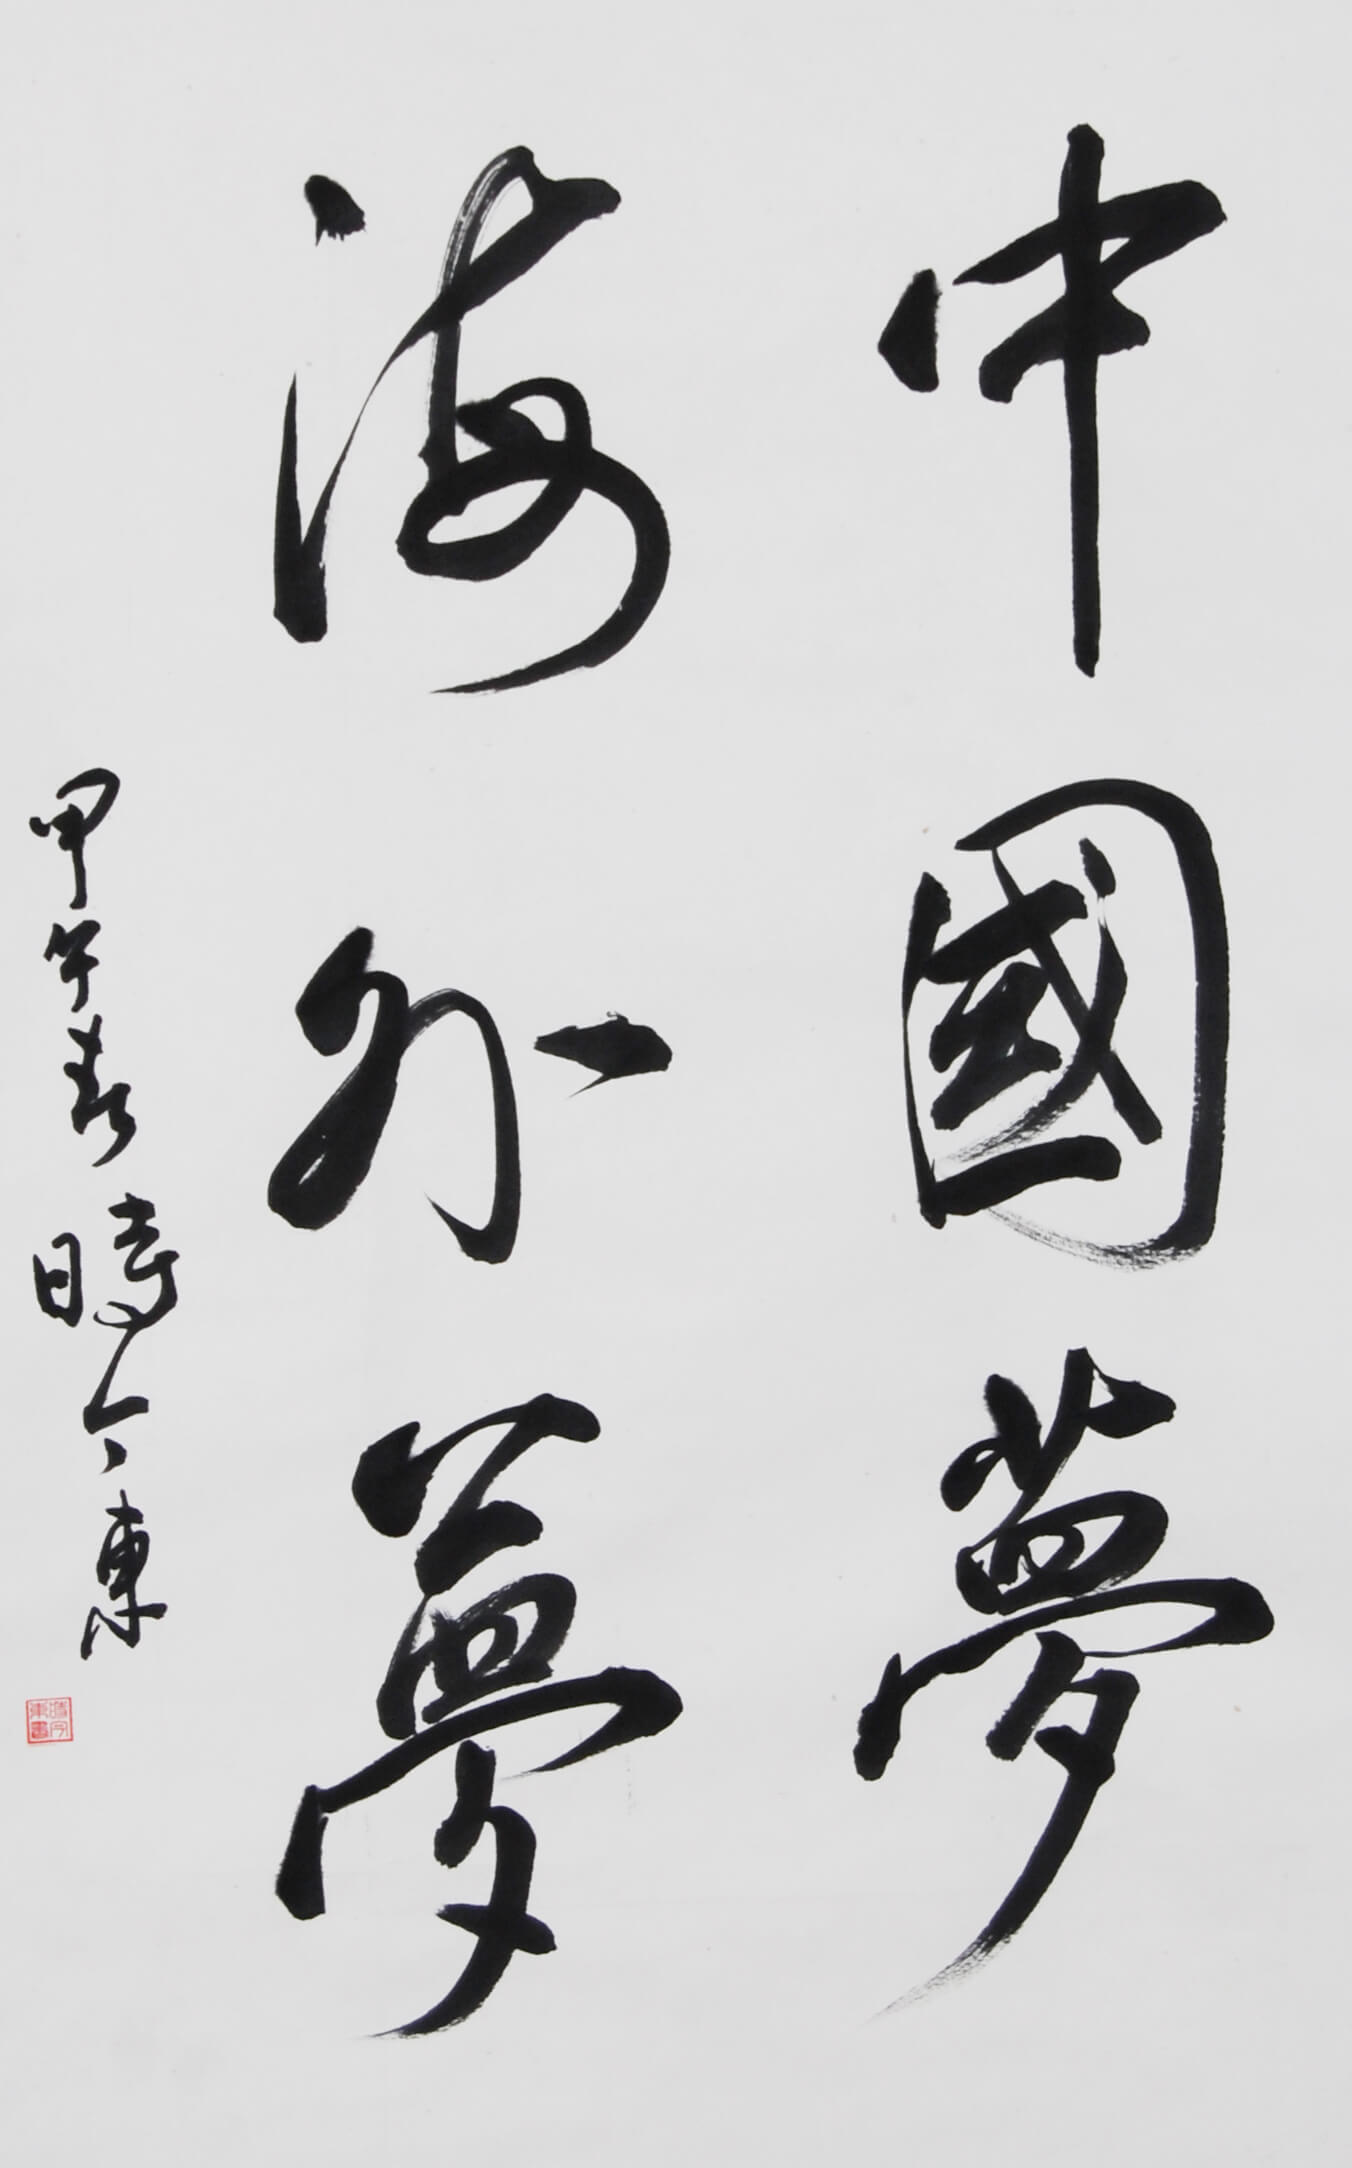 中國夢
海外夢
甲午春時今東
時今東書